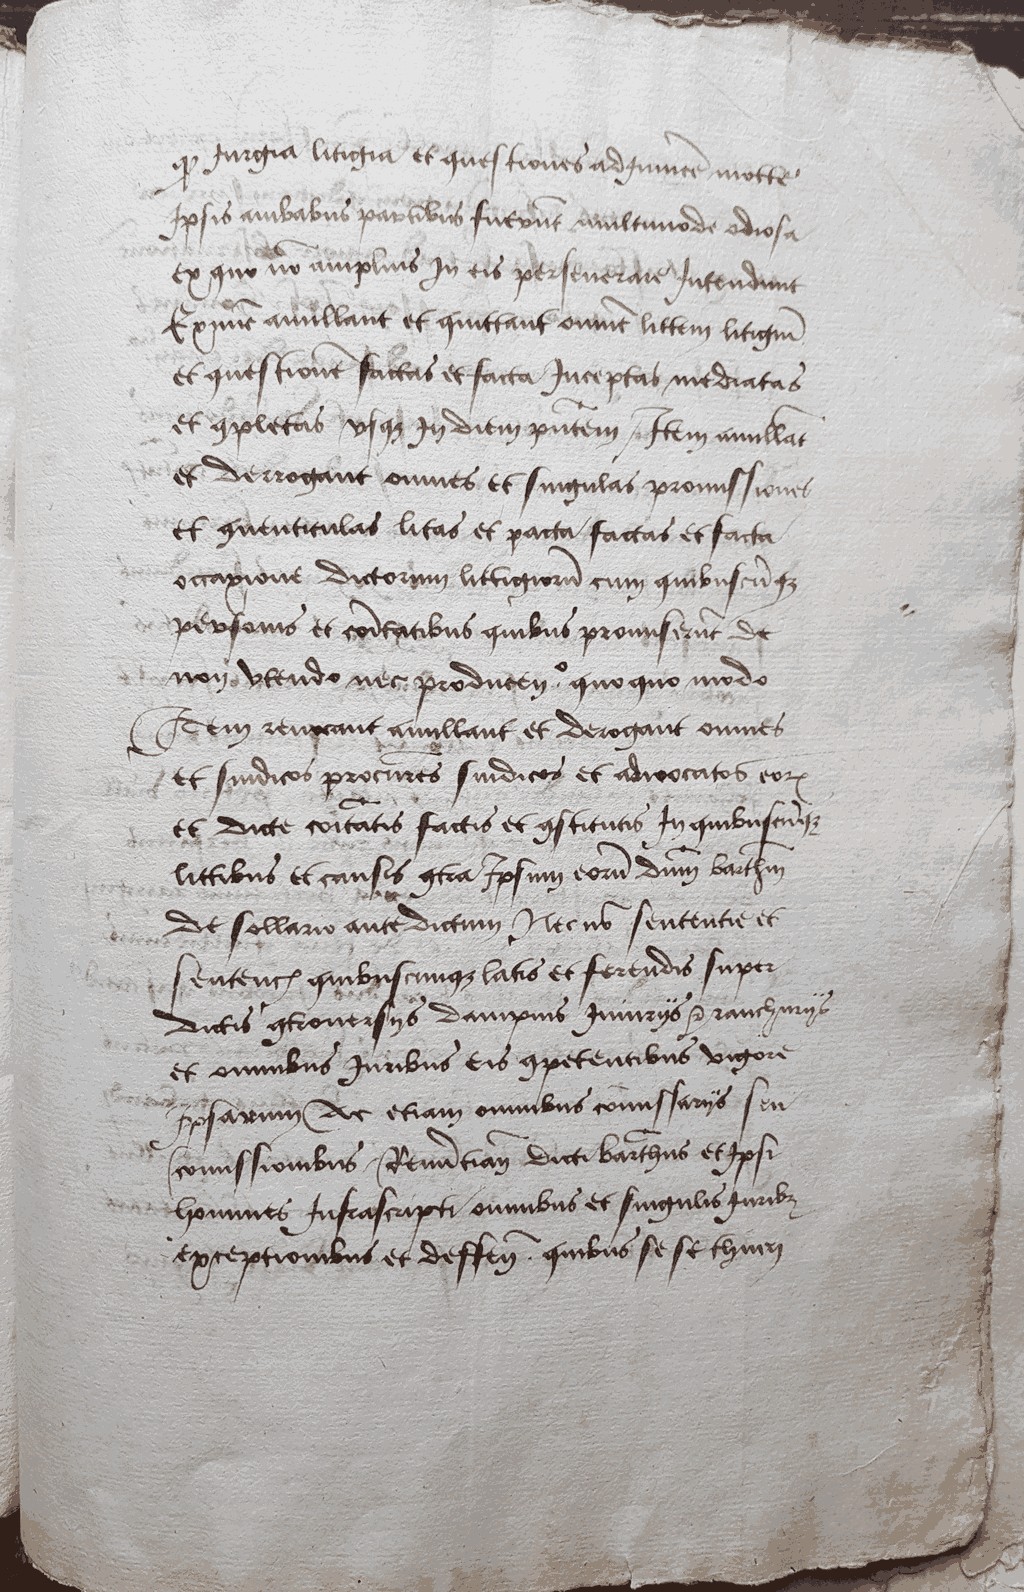 qp Jurgia litigia et questiones adJnuicē motte
Jpsis anbabus partibus fuerūt multimode odiosa
ex quo nō amplius Jn eis perseuerare Jntendunt
Exnūc anullant et quittant omnē littem litigiū
et questionē factas et facta Jnceptas mediatas
et 9pletas vsq3 Jn diem pn̄tem Jtem anullāt
et derrogant omnes et singulas promissiones
et 9uenticulas litas et pacta factas et facta
occaxione dictorum littigiorū cum quibuscūq3
personis et cōitatibus quibus promiserūt de
non vtendo nec producen.º quoquo modo
Jtem reuocant anullant et derogant omnes
et sindicos procur̄es sindicos et aduocatos eor
et dicte cōitatis factis et 9stitutis Jn quibuscūq3
littibus et causis 9tra Jpsum eorū dūm barthm̄
de sollario antedictum Nec nō sententie et
sentenc quibuscunq3 latis et ferendis super
dictis 9trouersijs dampnis Jniurijs ranchurijs
et omnibus Juribus eis 9petentibus vigore
Jpsarum Ac etiam omnibus cōmissarijs seu
cōmissionibus Renūtian̄ dicti barthūs et Jpsi
homines Jnfrascripti omnibus et singulis Jurib3
exceptionibus et deffen̄. quibus se se thuerj